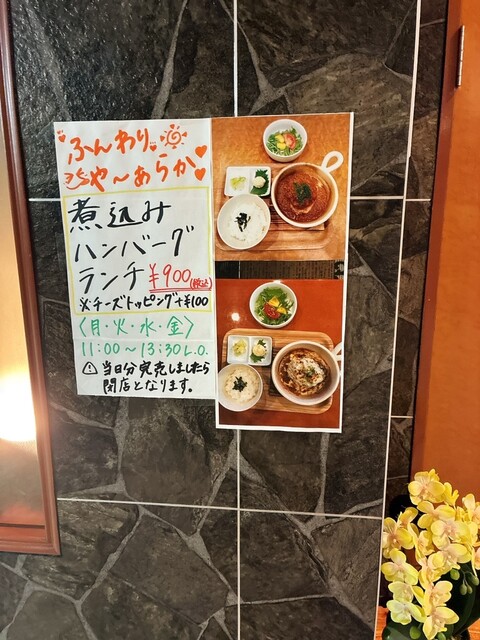 ふんわり
や〜あらか
煮込み
ハンバーグ
ランチ¥900(税込)
※チーズトッピング+¥100
〈月・火・水・金〉
11:00〜13:30 L.O.
⚠当日分完売しましたら
閉店となります。